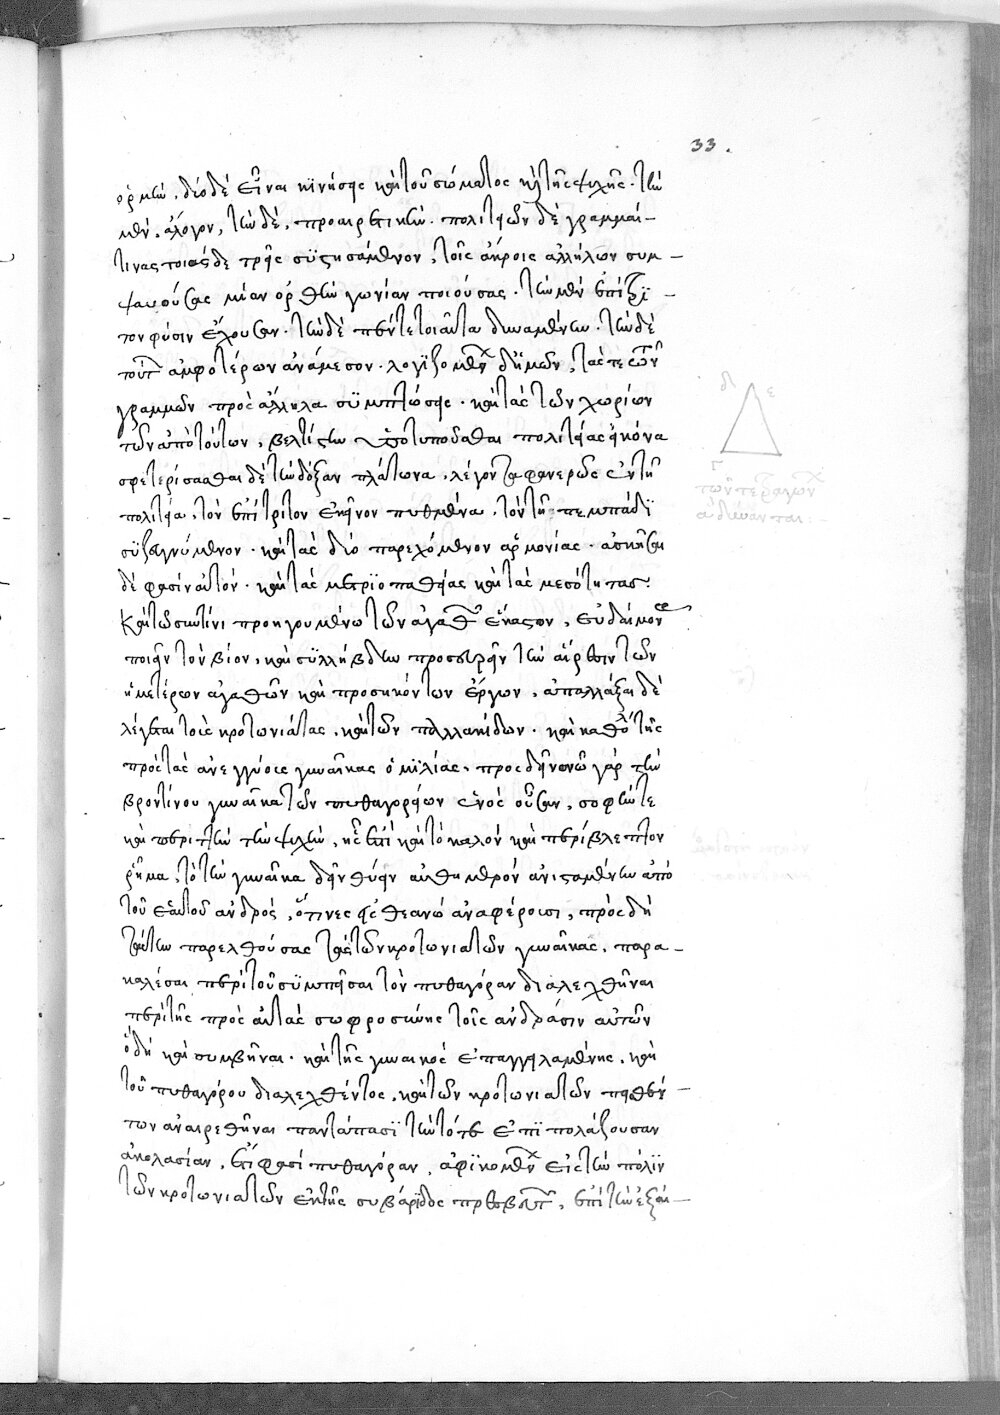 33.
ὁρμὴν. δύο δὲ εἶναι κϊνήσεις καὶ τοῦ σώματος κ τῆς ψυχῆς. τὴν
μὲν, ἄλογον, τὴν δὲ, προαιρετικὴν. πολιτειῶν δὲ γραμμάς
τινας τοιάσδε τρεῖς συϊστησάμενον, τοῖς ἄκροις ἀλλήλων συμ-
ψαυούσας μίαν ὀρθὴν γωνίαν ποιούσας. τὴν μὲν ἐπίτρϊ-
τον φύσιν ἔχουσαν. τὴν δὲ πέντε τοιαῦτα δυναμένην. τὴν δὲ
τούτ ἀμφοτέρων ἀνάμεσον. λογϊζομέν δ' ἡμῶν, τάς τε τῶν
γραμμῶν πρὸς ἄλληλα συμπτώσεις. καὶ τὰς τῶν χωρίων
τῶν ἀπὸ τούτων, βελτίστην ὑποτυποῦσθαι πολιτείας εἰκόνα
σφετερίσασθαι δὲ τὴν δόξαν πλάτωνα, λέγοντα φανερῶς ἐν τῇ
πολιτεία, τὸν ἐπίτριτον ἐκεῖνον πυθμένα, τὸν τῇ πεμπάδϊ
συϊζευγνύμενον. καὶ τὰς δύο παρεχόμενον ἁρμονίας. ἀσκῆσαι
δέ φασιν αὐτὸν. καὶ τὰς μετρϊοπαθείας καὶ τὰς μεσότητας.
Καὶ τὸ σύν τινι προηγουμένω τῶν ἀγαθ ἕκαστον, εὐδαίμον
ποιεῖν τὸν βίον, καὶ συλλήβδην προσευρεῖν τὴν αἵρεσιν τῶν
ἡμετέρων ἀγαθῶν καὶ προσηκόντων ἔργων, ἀπαλλάξαι δὲ
λέγεται τοὺς κροτωνιάτας, καὶ τῶν παλλακίδων. καὶ καθόλ τῆς
πρὸς τὰς ἀνεγγύους γυναῖκας ὁμϊλίας. πρὸς δεινὼ γὰρ τὴν
βροντίνου γυναῖκα τῶν πυθαγορείων ἑνὸς οὖσαν, σοφήν τε
καὶ περιττὴν τὴν ψυχὴν, ἧς ἐστὶ καὶ τὸ καλὸν καὶ περίβλεπτον
ῥῆμα, τὸ τὴν γυναῖκα δεῖν θύειν αὐθημερὸν ἀνισταμένην ἀπὸ
τοῦ ἑαυτοῦ ἀνδρὸς, ὅ τινες εἰς θεανὼ ἀναφέρουσι, πρὸς δὴ
ταύτην παρελθούσας τὰς τῶν κροτωνιατῶν γυναῖκας, παρα-
καλέσαι περὶ τοῦ συμπεῖσαι τὸν πυθαγόραν διαλεχθῆναι
περὶ τῆς πρὸς αὐτὰς σωφροσύνης τοῖς ἀνδράσιν αὐτῶν
ὃ δὴ καὶ συμβῆναι. καὶ τῆς γυναικὸς ἐπαγγειλαμένης, καὶ
τοῦ πυθαγόρου διαλεχθέντος, καὶ τῶν κροτωνιατῶν πεισθέν-
των ἀναιρεθῆναι παντάπασϊ τὴν τότε ἐπϊπολάζουσαν
ἀκολασίαν, ἔτι φασὶ πυθαγόραν, ἀφϊκομέν εἰς τὴν πόλϊν
τῶν κροτωνιατῶν ἐκ τῆς συβάριδος πρεσβευτ, ἐπὶ τὴν ἐξαί-